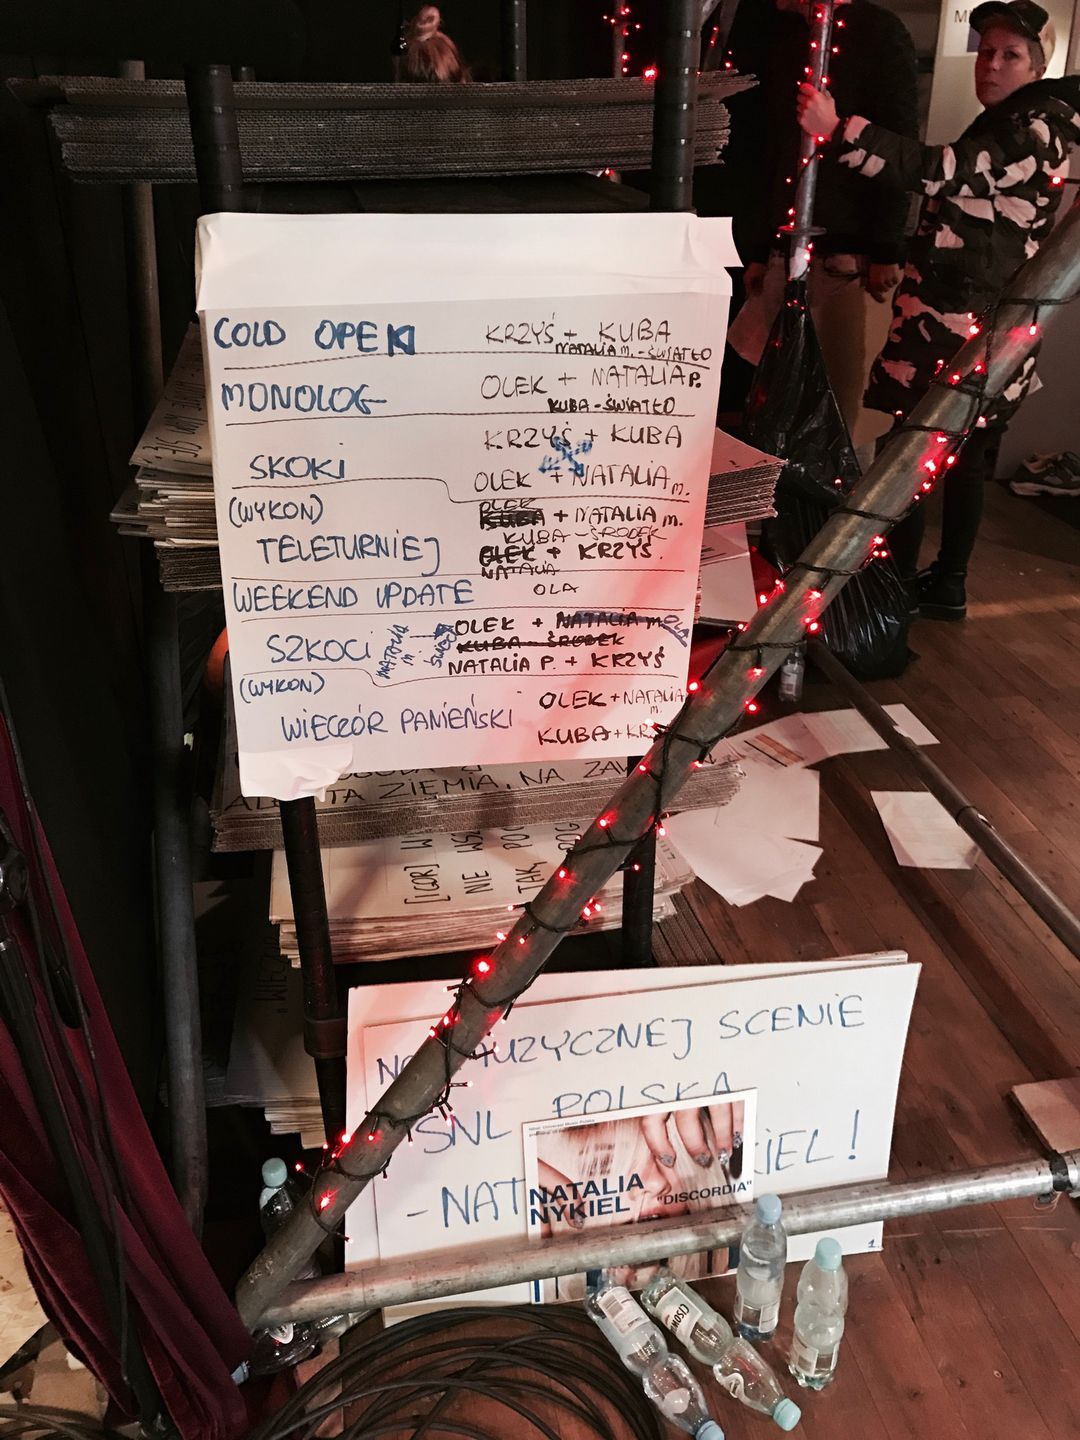 COLD OPEN
KRZYŚ + KUBA
NATALIA M. - ŚWIATŁO
MONOLOG
OLEK + NATALIA P.
KUBA - ŚWIATŁO
KRZYŚ + KUBA
SKOKI
OLEK + NATALIA M.
(WYKON)
OLEK
KUBA + NATALIA M.
KUBA - ŚRODEK
TELETURNIEJ
OLEK + KRZYŚ.
NATALIA
WEEKEND UPDATE
OLA
SZKOCI
NATALIA M
OLEK + NATALIA M. OLA
KUBA - ŚRODEK
NATALIA P. + KRZYŚ
(WYKON)
WIECZÓR PANIEŃSKI
OLEK + NATALIA M.
KUBA + KRZ
TA ZIEMIA, NA ZAW
[IGOR]
NIE WSZ
TAK, POG
MUZYCZNEJ SCENIE
SNL POLSKA
- NAT KIEL!
NATALIA
NYKIEL
"DISCORDIA"
1